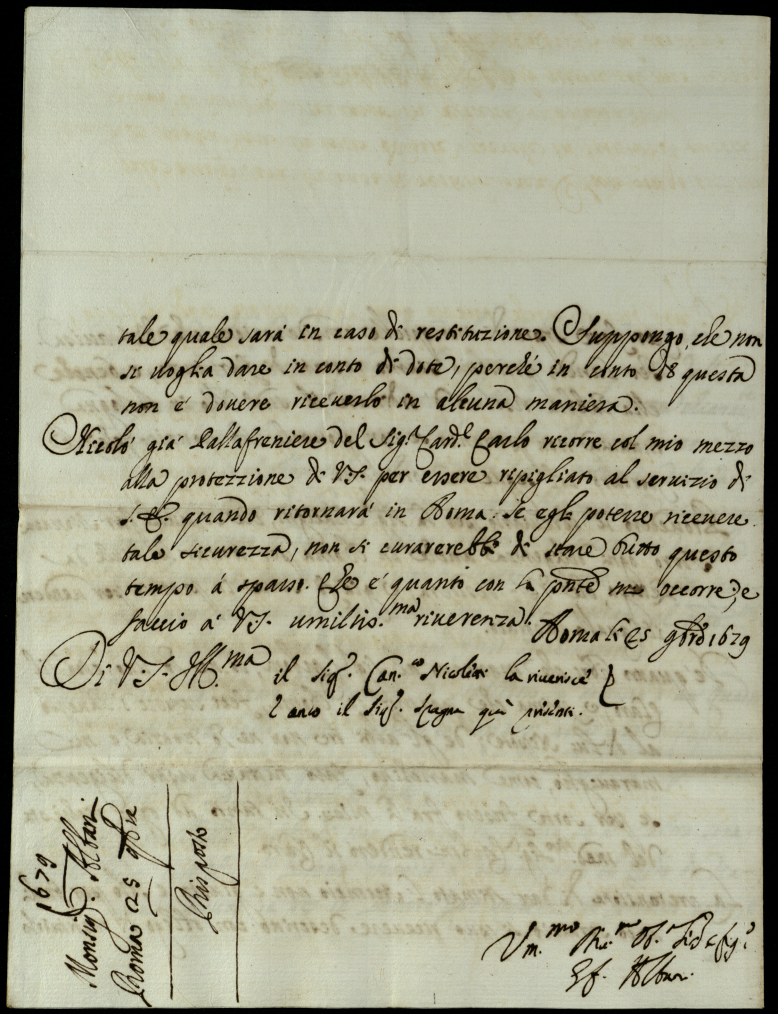 tale quale sará in caso di restituzione. Suppongo, che non
si voglia dare in conto di dote, perché in conto di questa
non é dovere riceverló in alcuna maniera.
Niccoló giá Pallafreniere del Sig.r Card.l Carlo ricorre col mio mezzo
alla protezzione di V.S. per essere ripigliato al servizio di
S.E. quando ritornará in Roma. Se egli potesse ricevere
tale sicurezza, non si curarerebbe di stare tutto questo
tempo á spasso. Che é quanto con la pnte mi occorre, e
faccio á V.S. umiliss.ma riverenza. Roma li 25 9bre 1679
Di V.S. Ill.ma il Sig.r Can.co Nicolini la riverisce
e anco il Sig.r Spagna quí presente.
1679
Monsig.r Albani
Roma 25 9bre
Risposto
Um.mo